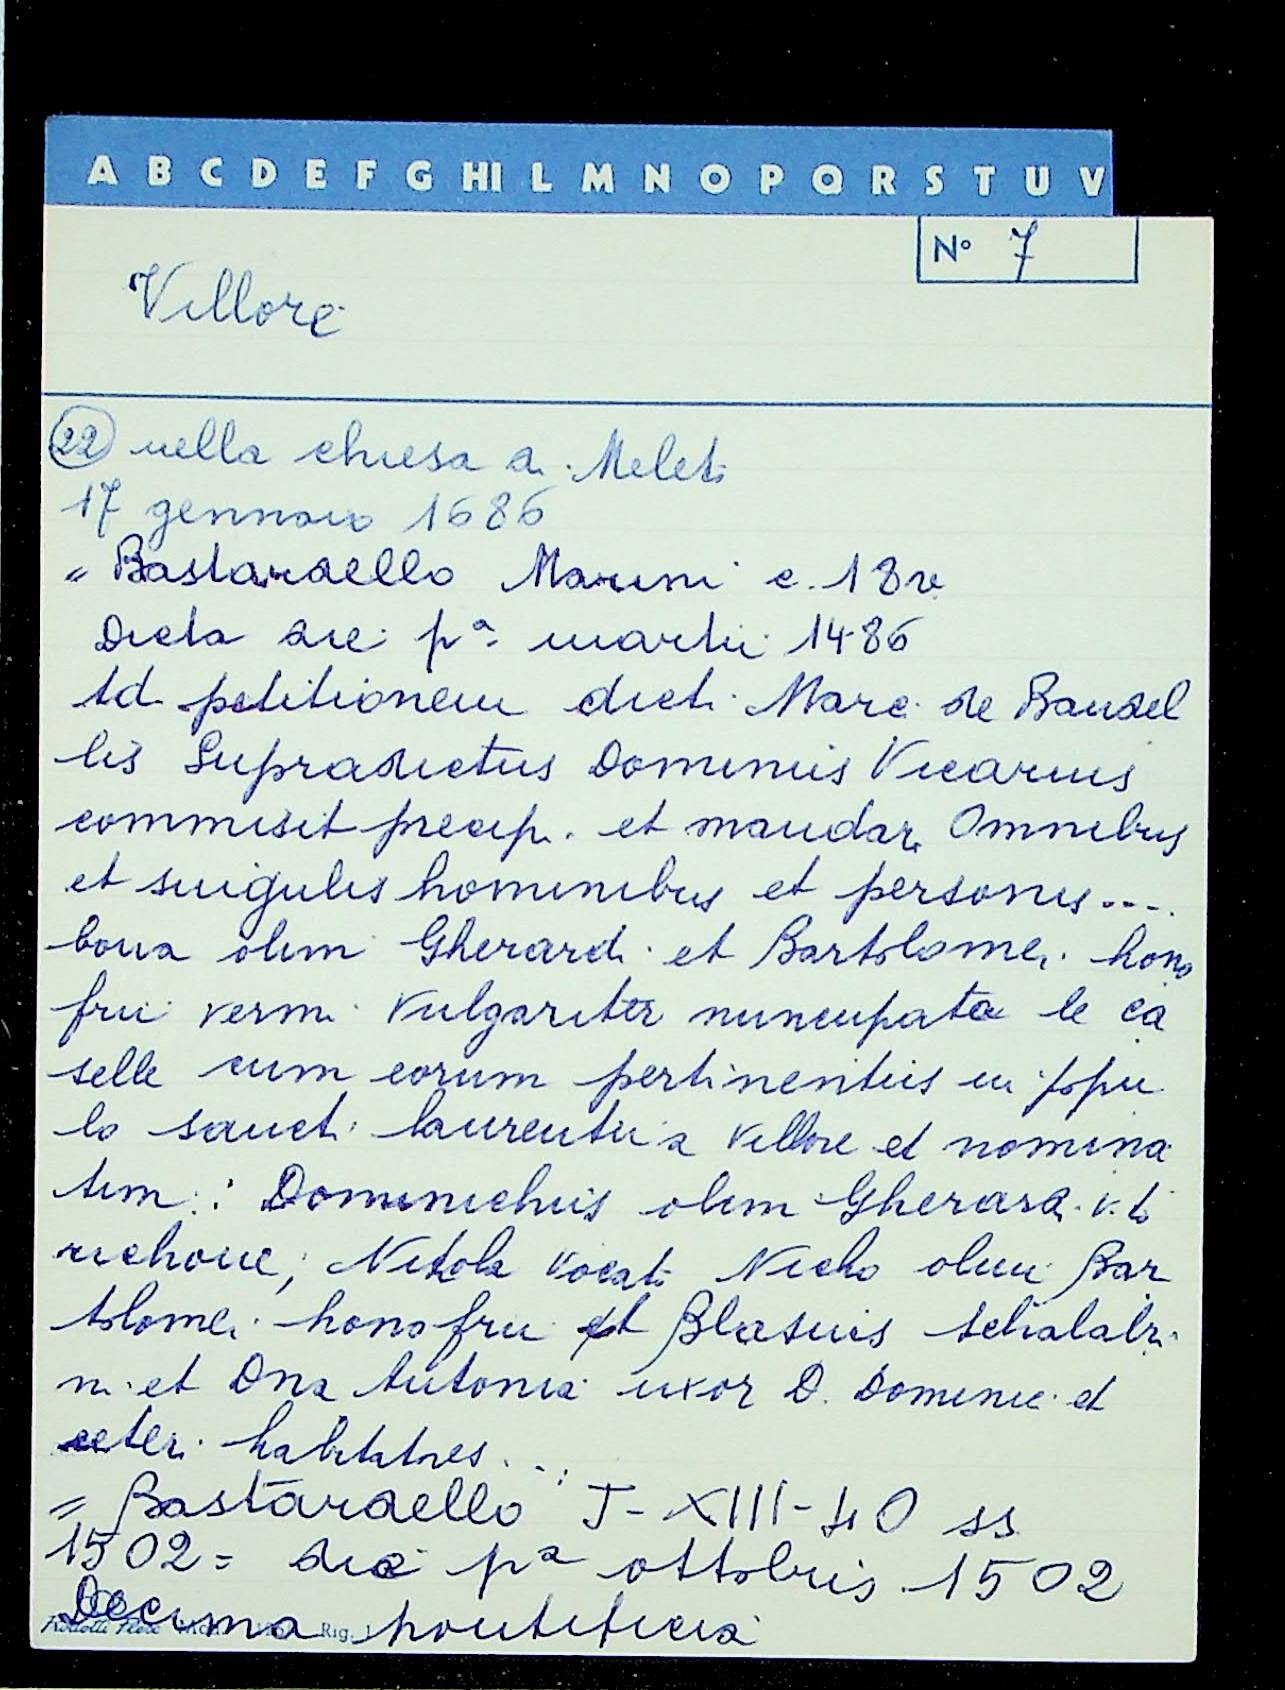 A B C D E F G HI L M N O P Q R S T U V
N° 7
Villore
22 nella chiesa a Meleti
17 gennaio 1686
" Bastardello Marini c. 18v
Dicta die pa martii 1486
Ad petitionem dicti Marc. de Bandel
lis Supradictus Dominus Vicarius
commisit precip. et mandar. Omnibus
et singulis hominibus et personis....
bona olim Gherardi et Bartolomei hono
frii vulgariter nuncupata le ca
selle cum eorum pertinentiis in popu
lo sancti laurentii a Villore et nomina
tim: Dominichus olim Gherardi
olim Bar
tolomei honofrii et Blasius
ni et Dna Antonia uxor D. Dominici et
ceteri habitatores...
= Bastardello J-XIII-40 ss
1502= die pa ottobris 1502
Decima pontificia
Rig.